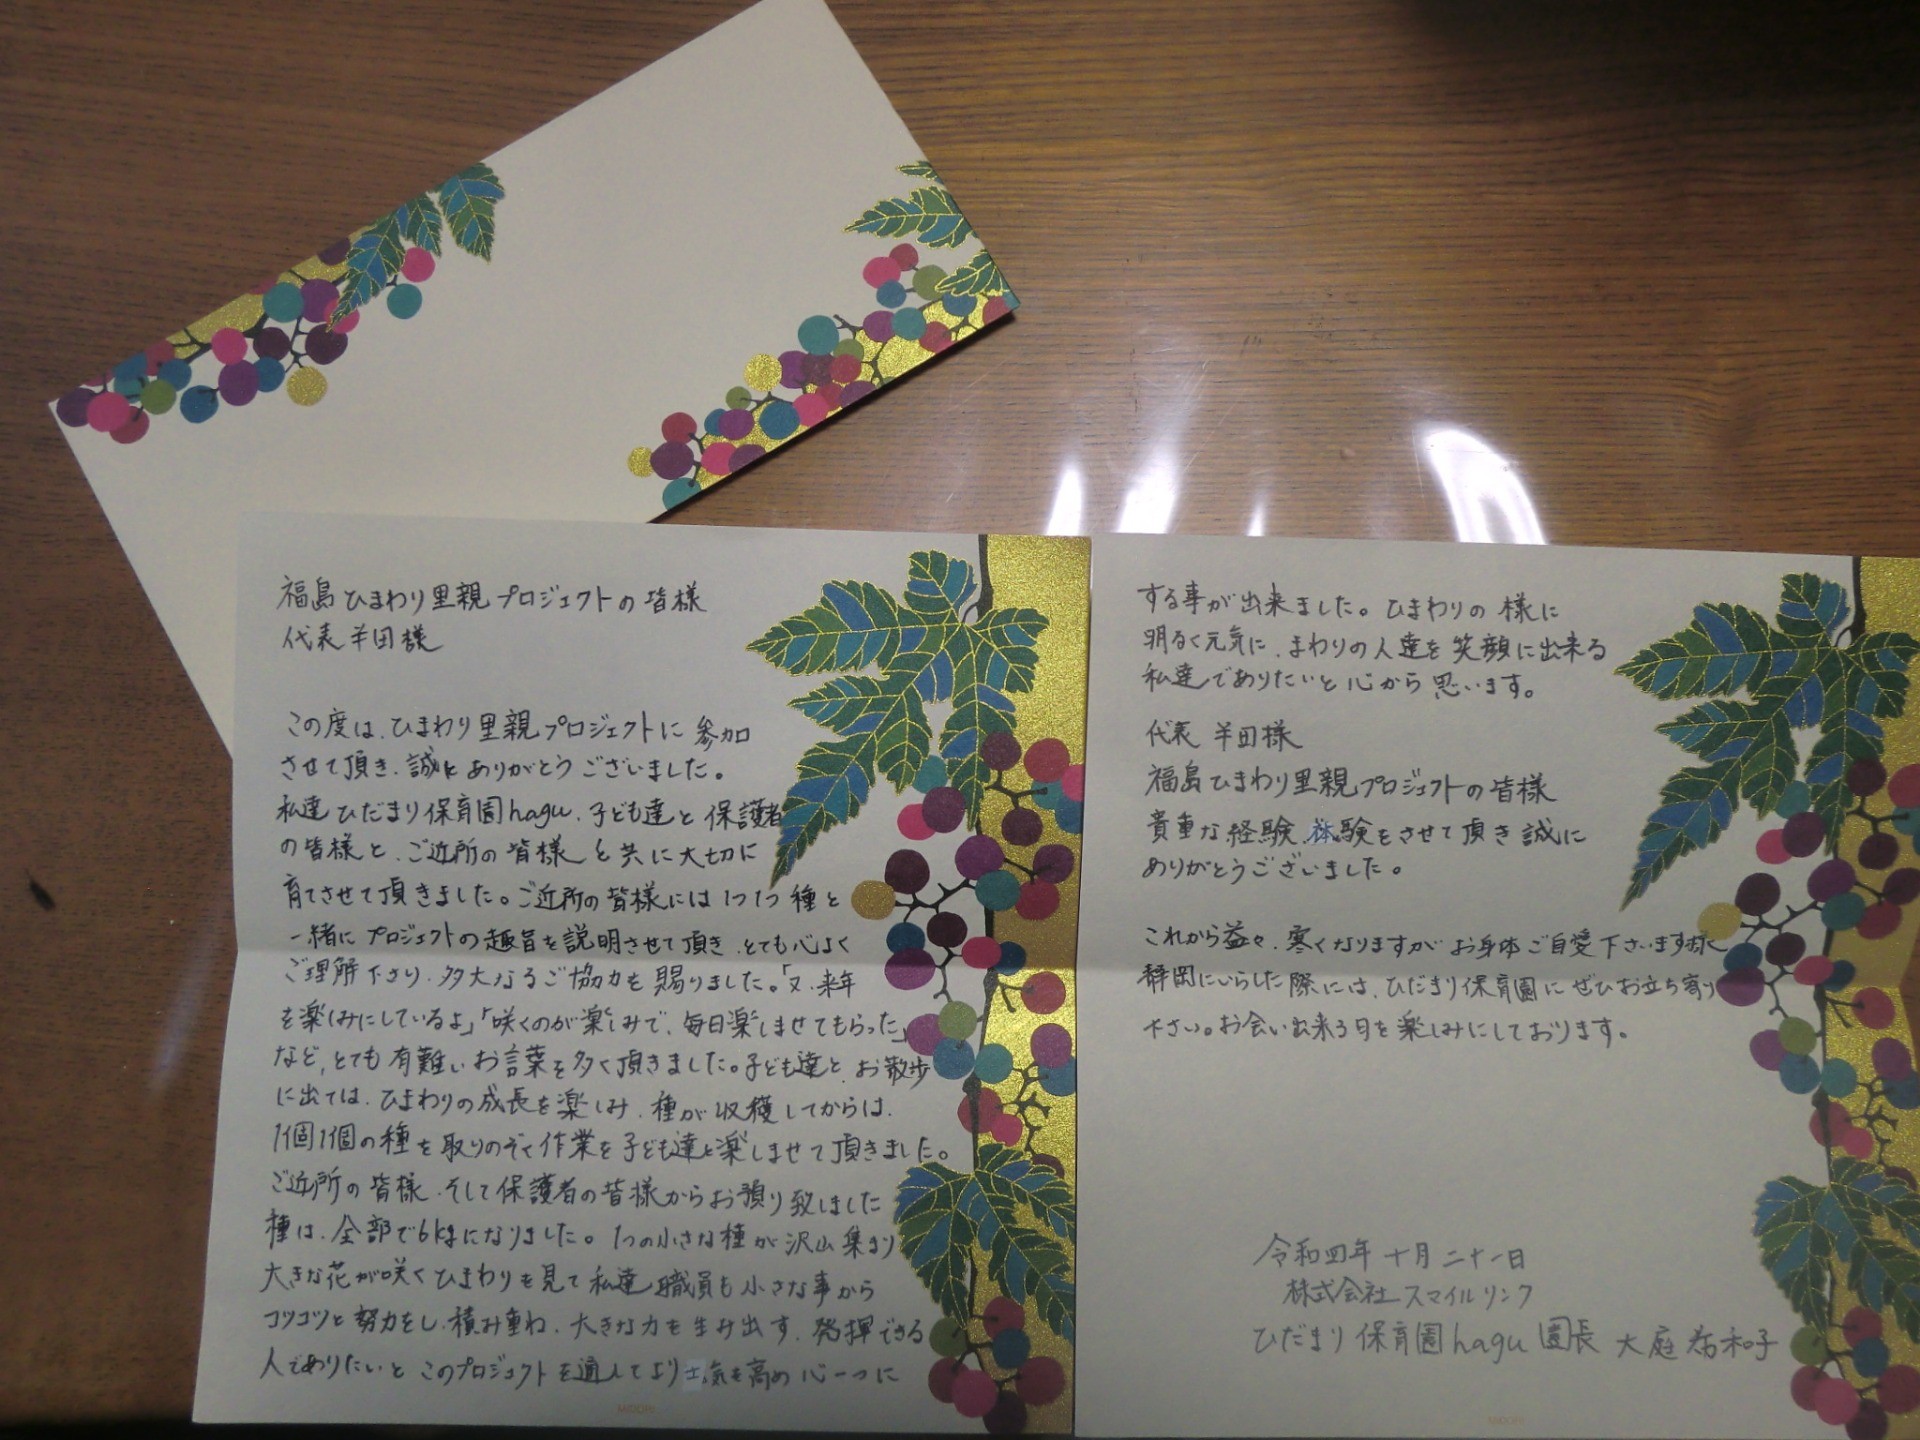 福島ひまわり里親プロジェクトの皆様
代表 半田様
この度は、ひまわり里親プロジェクトに参加
させて頂き、誠にありがとうございました。
私達ひだまり保育園hagu、子ども達と保護者
の皆様と、ご近所の皆様と共に大切に
育てさせて頂きました。ご近所の皆様には1つ1つ種と
一緒にプロジェクトの趣旨を説明させて頂き、とても心よく
ご理解下さり、多大なるご協力を賜りました。「又、来年
を楽しみにしているよ」「咲くのが楽しみで、毎日楽しませてもらった」
など、とても有難いお言葉を多く頂きました。子ども達と、お散歩
に出ては、ひまわりの成長を楽しみ、種が収穫してからは、
1個1個の種を取りのぞく作業を子ども達と楽しませて頂きました。
ご近所の皆様、そして保護者の皆様からお預り致しました
種は、全部で6kgになりました。1つの小さな種が沢山集まり
大きな花が咲くひまわりを見て私達職員も小さな事から
コツコツと努力をし、積み重ね、大きな力を生み出す、発揮できる
人でありたいとこのプロジェクトを通してより士気を高め心一つに
する事が出来ました。ひまわりの様に
明るく元気に、まわりの人達を笑顔に出来る
私達でありたいと心から思います。
代表 半田様
福島ひまわり里親プロジェクトの皆様
貴重な経験、体験をさせて頂き誠に
ありがとうございました。
これから益々、寒くなりますがお身体ご自愛下さいます様
静岡にいらした際には、ひだまり保育園にぜひお立ち寄り
下さい。お会い出来る日を楽しみにしております。
令和四年十月二十一日
株式会社スマイルリンク
ひだまり保育園hagu 園長 大庭希和子
MIDORI
MIDORI